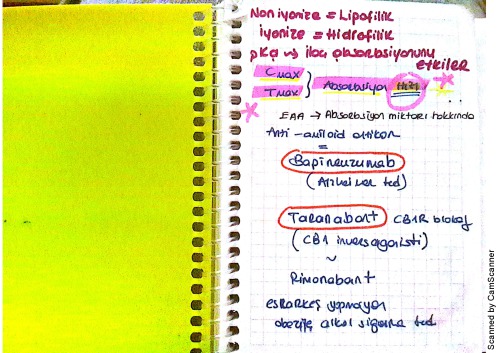 Noniyonize = Lipofilik
iyonize = Hidrofilik
pKa ve ilaç absorbsiyonunu
etkiler
Cmax
Tmax } Absorbsiyon Hızı
EAA → Absorbsiyon miktarı hakkında
Anti-amiloid antikor
=
Bapineuzumab
(Alzheimer ted)
Taranabant CB1R blokaj
(CB1 inversagonisti)
~
Rimonabant
yapmayan
obezite alkol sigara ted
Scanned by CamScanner